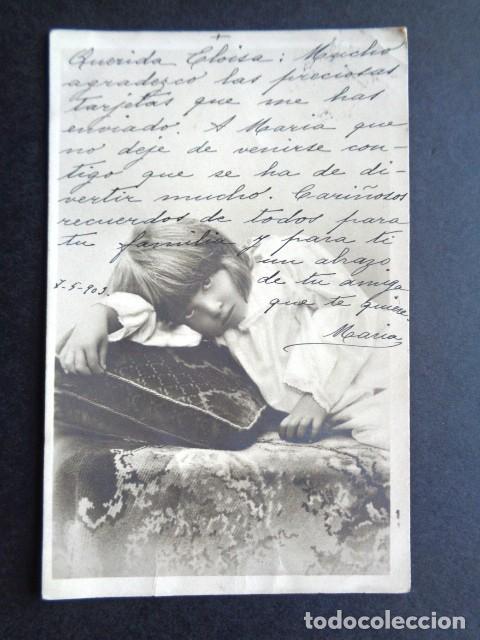 Querida Eloisa: Mucho
agradezco las preciosas
tarjetas que me has
enviado. A Maria que
no deje de venirse con-
tigo que se ha de di-
vertir mucho. Cariñosos
recuerdos de todos para
tu familia y para ti
un abrazo
de tu amiga
que te quiere
Maria
7-5-903.
todocoleccion.net